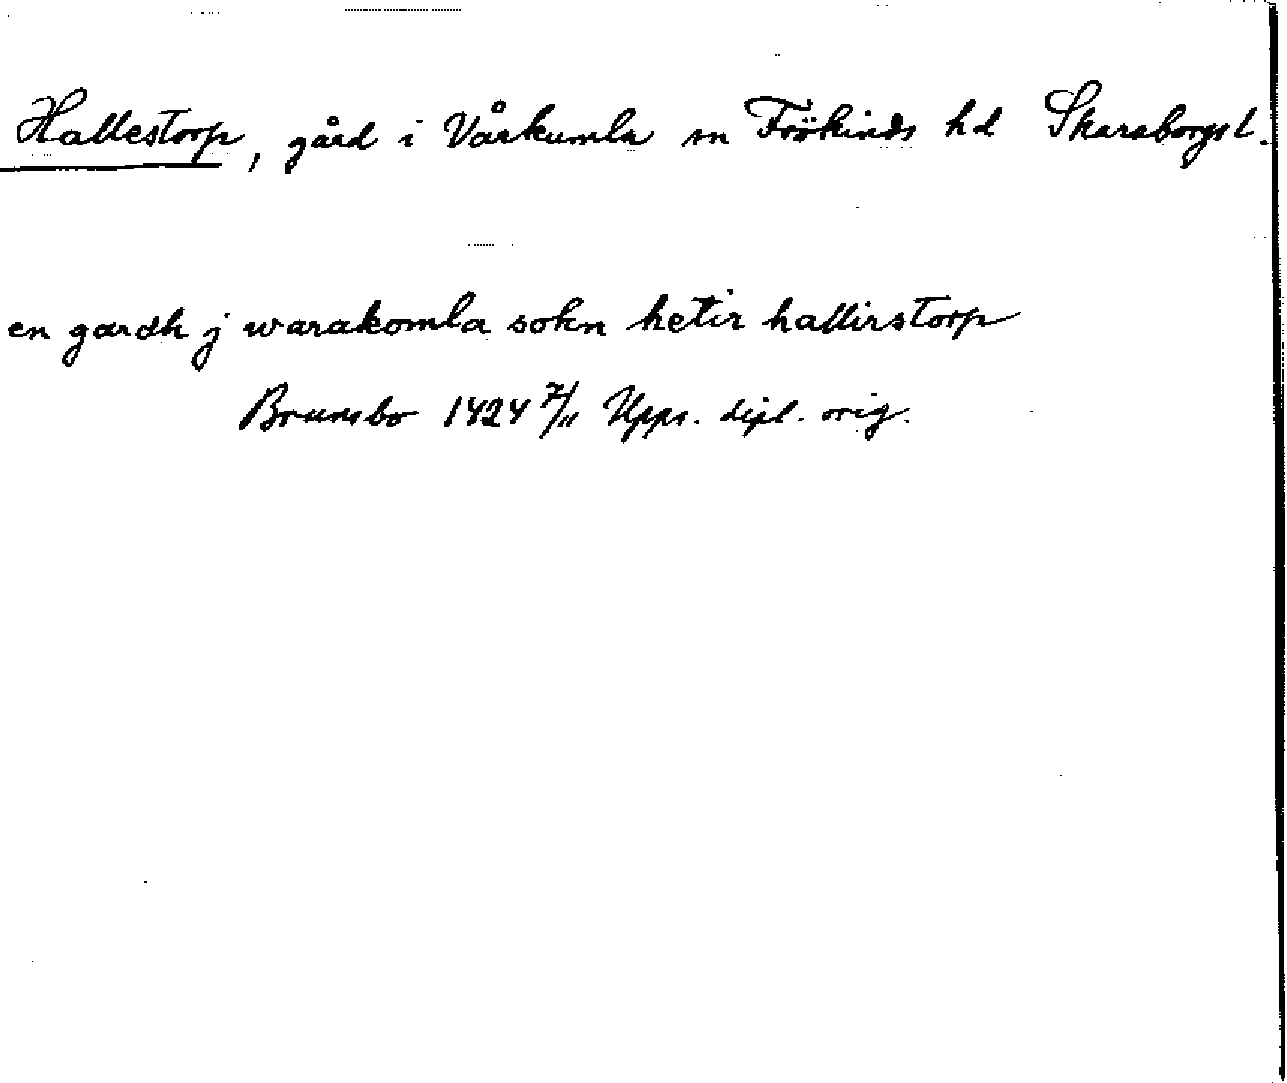 Hallestorp, gård i Vårkumla sn Frökinds hd Skaraborgs l.
en gardh j warakomla sokn hetir hallirstorp
Brunsbo 1424 7/11 Upps. dipl. orig.